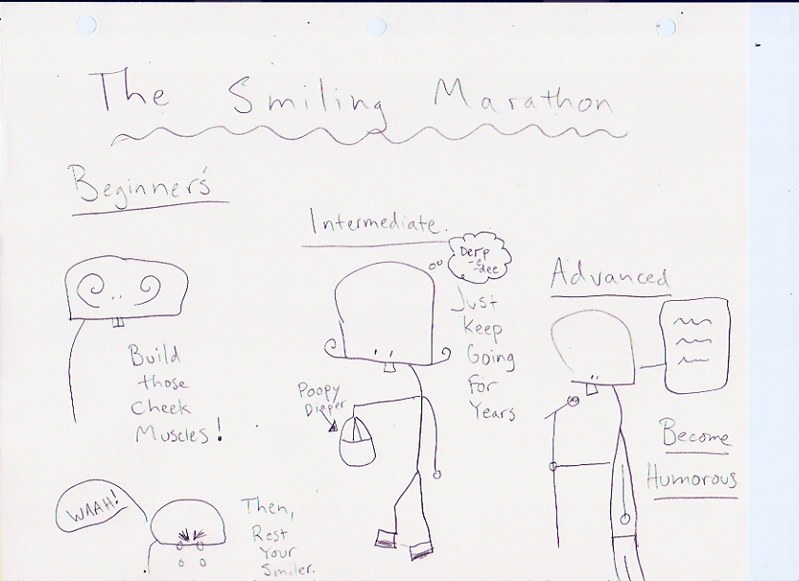 The Smiling Marathon
Beginner's
Build
those
Cheek
Muscles!
WAAH!
Then,
Rest
Your
Smiler.
Intermediate.
Derp
-e
-dee
Just
Keep
Going
For
Years
Poopy
Diaper
Advanced
Become
Humorous